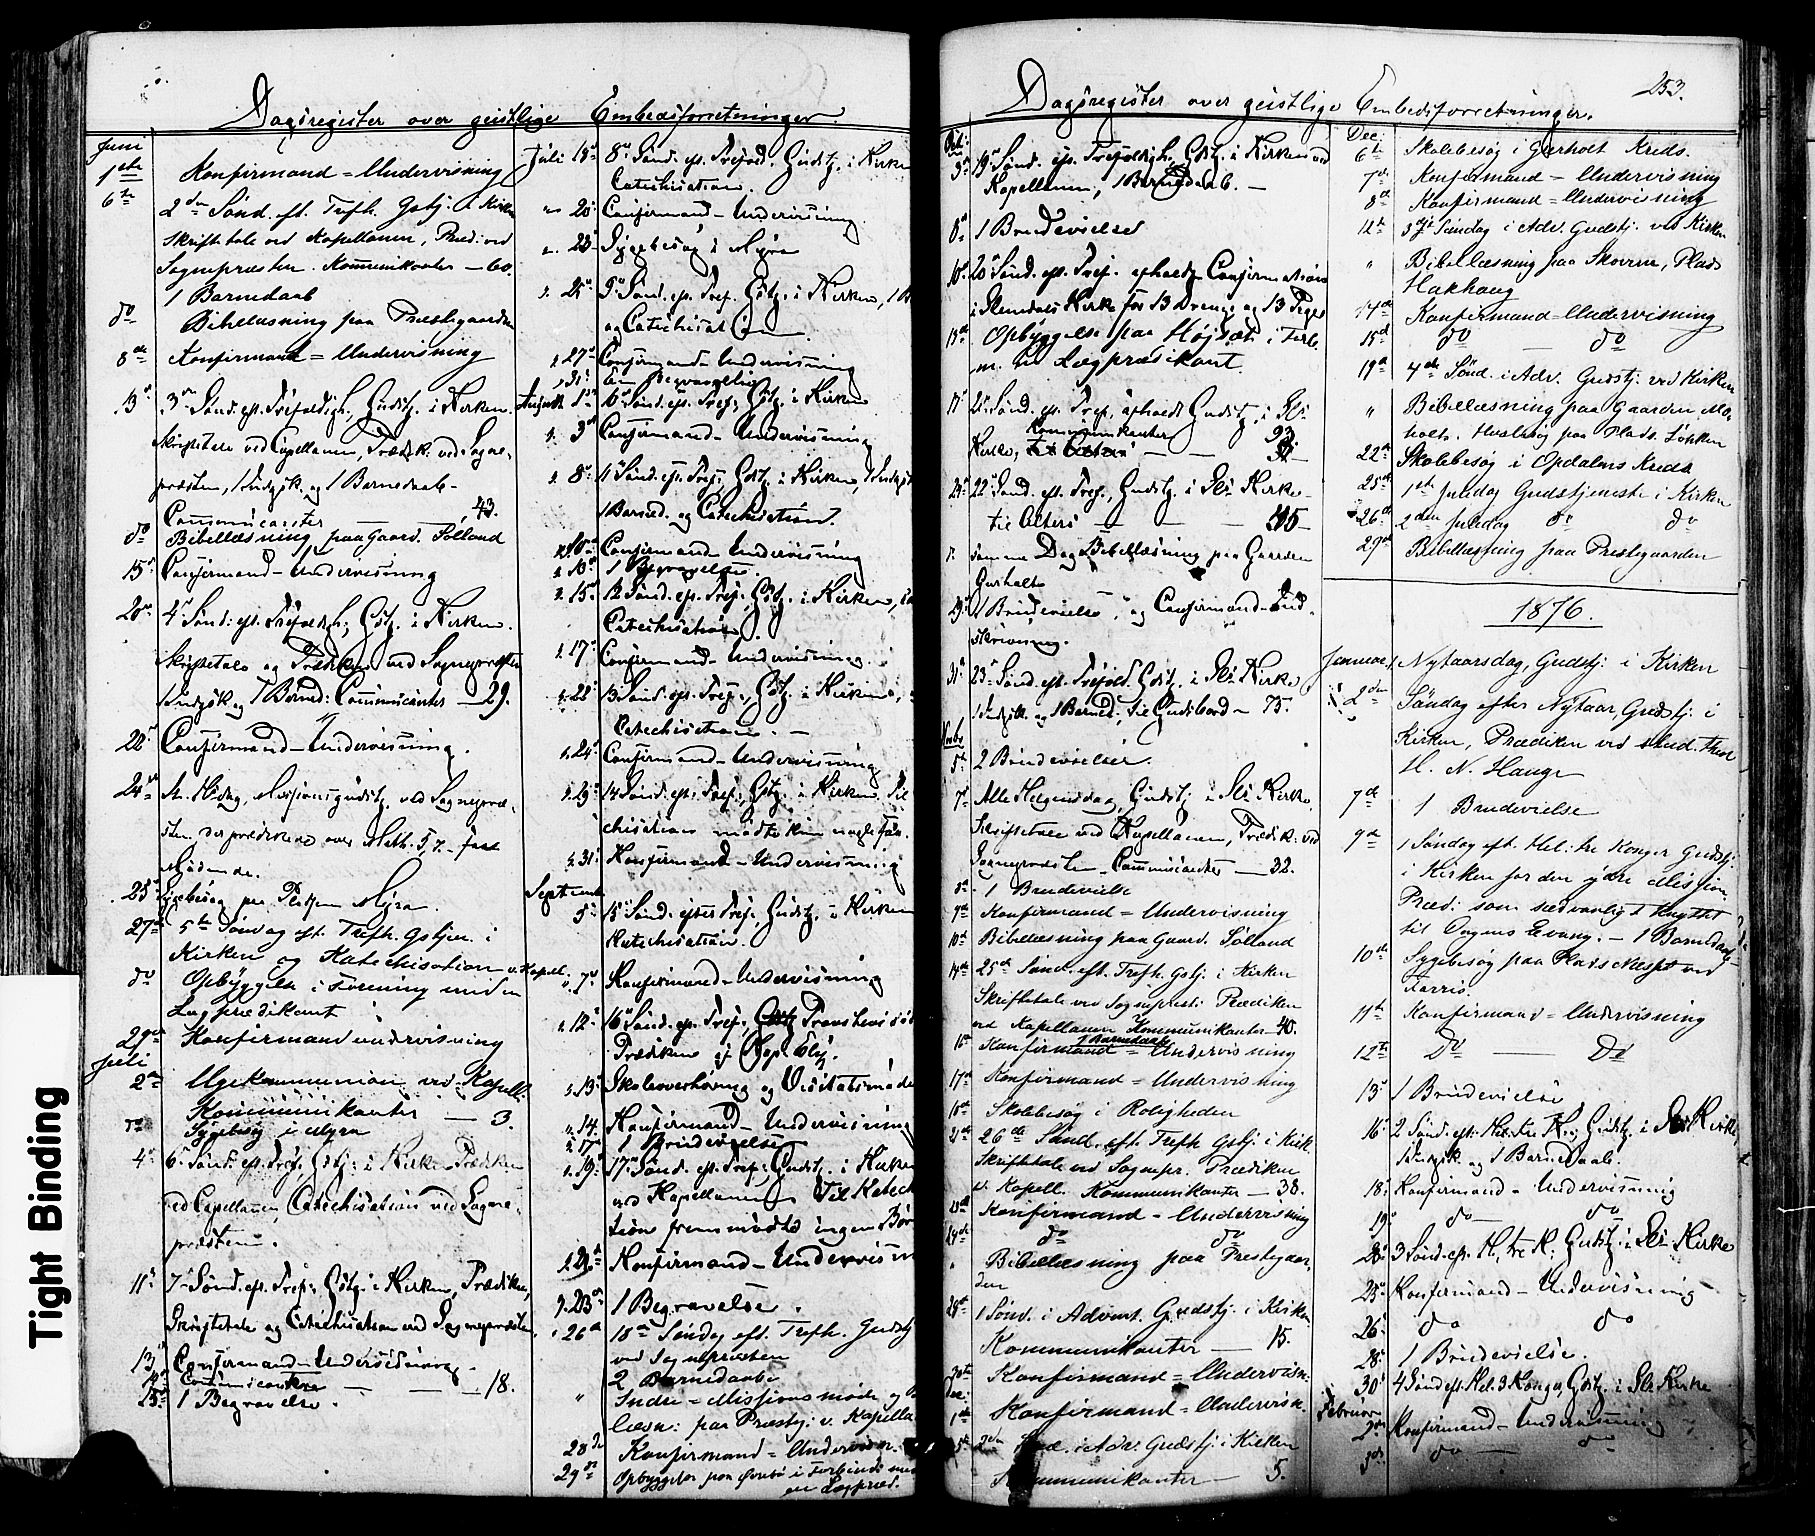 Dagsregister over geistlige Embedsforretninger.
Juni
1ste Konfirmand=Undervisning
6te 2den Sønd. eft. Trefh. Gstj. i Kirken
Skriftetale ved Kapellanen, Præd. ved
Sognepræsten. Kommunikanter – 60.
1 Barnedaab
do Bibellæsning paa Præstegaarden
8de Konfirmand=Undervisning
13de 3die Sønd. eft. Trefoldigh. Gudstj. i Kirken.
Skriftetale ved Capellanen, Prædik. ved Sogne-
præsten, 1 Indgsk. og 1 Barnedaab.
Communicanter — 43.
do Bibellæsning paa Gaard. Sølland
15de Confirmand-Undervisning
20de 4de Sønd. eft. Trefoldigh. Gstj. i Kirken.
Skriftetale og Prædiken ved Sognepræsten
1 Indgsk. og 1 Barned. Communicanter — 29.
22de Confirmand-Undervisning.
24de St. Hsdag, Missionsgudstj. ved Sognepræ-
sten, der prædikede over Math. 5,7. – faae
Mødende.
25de Sygebesøg paa Myra.
27de 5te Søndag eft. Trefh. Gstjen. i
Kirken og Katechisation v. Kapell.
do Opbyggelse i Forening med en
Lægprædikant
29de Konfirmandundervisning
Juli
2den Ugekommunion ved Kapell.
Kommunikanter — 3.
do Sygebesøg i Myra
4de 6te Sønd. eft. Tref. Gstj. i Kirken Prædiken
ved Capellanen, Catechisation ved Sogne-
præsten.
11te 7de Sønd. eft. Tref. Gstj. i Kirken, Prædiken,
Skriftetale og Catechisation ved Sognepræsten
13de Confirmand-Undervisning.
Communicantere — — 18.
15de 1 Begravelse.
Juli 18de 8de Sønd. eft. Trefold. Gudstj. i Kirken
Catechisation.
20de Confirmand-Undervisning.
23de Sygebesøg i Myra
25de 9de Sønd. eft. Tref. Gstj. i Kirken, 1 B
og Catechisation
27de Confirmand-Undervisning
31te en Begravelse
August 1ste 10de Sønd. eft. Tref. Gstj. i Kirken
3die Confirmand-Undervisning
8de 11te Sønd. eft. Tref. Gstj. i Kirken, 1 Indgsk
1 Barned. og Catechisation.
10de Confirmand-Undervisning
1 Begravelse.
15de 12te Sønd. eft. Tref. Gstj. i Kirken,
Catechisation.
17de Confirmand-Undervisning.
22de 13de Sønd. eft. Tref. Gstj. i Kirken,
Catechisation. –
24de Confirmand-Undervisning
29de 14de Sønd. eft. Tref. Gstj. i Kirken. Til
chisation mødte kun nogle faa.
31te Konfirmand-Undervisning
Septembr
5te 15de Sønd. efter Tref. Gudstj. i Kirken
Katechisation.
7de Konfirmand-Undervisning
12te 16de Sønd. eft. Tref. Provstevisi
Prædiken af Kap.
13de Skoleoverhøring og Visitatsmøde
14. Konfirmand-Undervisning
17de 1 Brudevielse
19de 17de Sønd. eft. Tref. Gudstj. i Kirken
ved Kapellanen Til Katech
tion fremmødte ingen Bør
Konfirmand-Undervisn
23de 1 Begravelse.
26de 18de Søndag eft. Trefh. Gudstj
ved Sognepræsten
2 Barnedaabe
" Indre-Missionsmøde og B
læsn. paa Præstg. v. Kapella
28de Konfirmand=Undervisn.
29de Opbyggelse paa i Forbinds med
en Lægpræd.
253.
Dagsregister over geistlige Embedsforretninger.
Oct:
3die 19de Sønd. eft. Trefoldigh. Gstj. i Kirken ved
Kapellanen, 1 Barnedaab. –
8de 1 Brudevielse
10de 20de Sønd. eft. Tref. afholdt Confirmation
i Slemdals Kirke for 13 Drenge og 13 Piger
Opbyggelse paa Højsæt i Forb.
m. en Lægprædikant.
17de 21de Sønd. eft. Tref. afholdt Gudstj. i Sls
Kirke, Kommunikanter 93
24de 22de Sønd. eft. Tref., Gudstj. i Sls Kirke –
til Alters — — 45
samme Dag Bibellæsning paa Gaarden
Gjerholt
29de 1 Brudevielse, og Confirmand-Ind-
skrivning.
31te 23de Sønd. eft. Trefold. Gstj. i Sls Kirke
1 Indgsk. og 1 Barned. Til Gudsbord – 75.
Novbr
5te 2 Brudevielser.
7de Alle Helgensdag, Gudstj. i Sls Kirke,
Skriftetale ved Kapellanen, Prædik. ved
Sognepræsten – Communicanter — 32.
8de 1 Brudevielse
9de Konfirmand=Undervisning
10de Bibellæsning paa Gaard. Sølland
14de 25de Sønd. eft. Trefh. Gstj. i Kirken
Skriftetale ved Sognepræst. Prædiken
ved Kapellanen Kommunikanter 40.
1 Barnedaab
16de Konfirmand=Undervisning
17de Konfirmand=Undervisning
18de Skolebesøg i Roligheden
21de 26de Sønd. eft. Trefh. Gstj. i Kirk.
Skriftetale ved Sognepr. Prædiken
v. Kapell. Kommunikanter — 38.
23de Konfirmand=Undervisning
24de do do
" Bibellæsning paa Præstegaar-
den
28de 1 Sønd. i Advent. Gudstj. i Kirken
Kommunikanter — 15.
30te Konfirmand=Undervisn.
Dec:
1ste Konfirmand=Undervisn.
5te 2den Sønd. i Adv. Gudstj. i Kirken
Kommunikanter — 5.
Dec:
6te Skolebesøg i Gjerholt Kreds.
7de Konfirmand=Undervisning
8de Konfirmand=Undervisning
12te 3die Søndag i Adv. Gudstj. ved Kirken
" Bibellæsning paa Skoven, Plads
Hakhaug
14de Konfirmand=Undervisning
15de do — do
19de 4de Sønd. i Adv. Gudstj. ved Kirken
" Bibellæsning paa Gaarden Mo-
holt. Husbesøg paa Plads. Løkken
22de Skolebesøg i Opdalens Kreds
25de 1ste Juledag Gudstjeneste i Kirken
26de 2den Juledag do do
29de Bibellæsning paa Prestegaarden
1876.
Januar 1 Nytaarsdag, Gudstj. i Kirken
2den Søndag efter Nytaar, Gudstj. i
Kirken, Prædiken ved stud. theol
H. N. Hauge
7de 1 Brudevielse
9de 1 Søndag eft. Hel. tre Konger Gudstj.
i Kirken for den ydre Mission
Præd. som sædvanligt knyttet
til Dagens Evang. – 1 Barnedaab
10de Sygebesøg paa Plads Næset ved
Farris.
11te Konfirmand=Undervisning
12te Do — Do
13de 1 Brudevielse
16de 2 Sønd. eft. Hel. tre K., Gudstj. i Sls Kirke,
1 Indgsk. og 1 Barnedaab.
18de Konfirmand-Undervisning
19de do — do
23de 3 Sønd. eft. H. tre K. Gudstj. i Sls Kirke
25de Konfirmand-Undervisning
26de do do
28de 1 Brudevielse.
30te 4 Sønd eft. Hel. 3 Konger, Gstj. i Sls Kirke
Februar
2den Konfirmand-Undervisning
3die do — do
Tight Binding